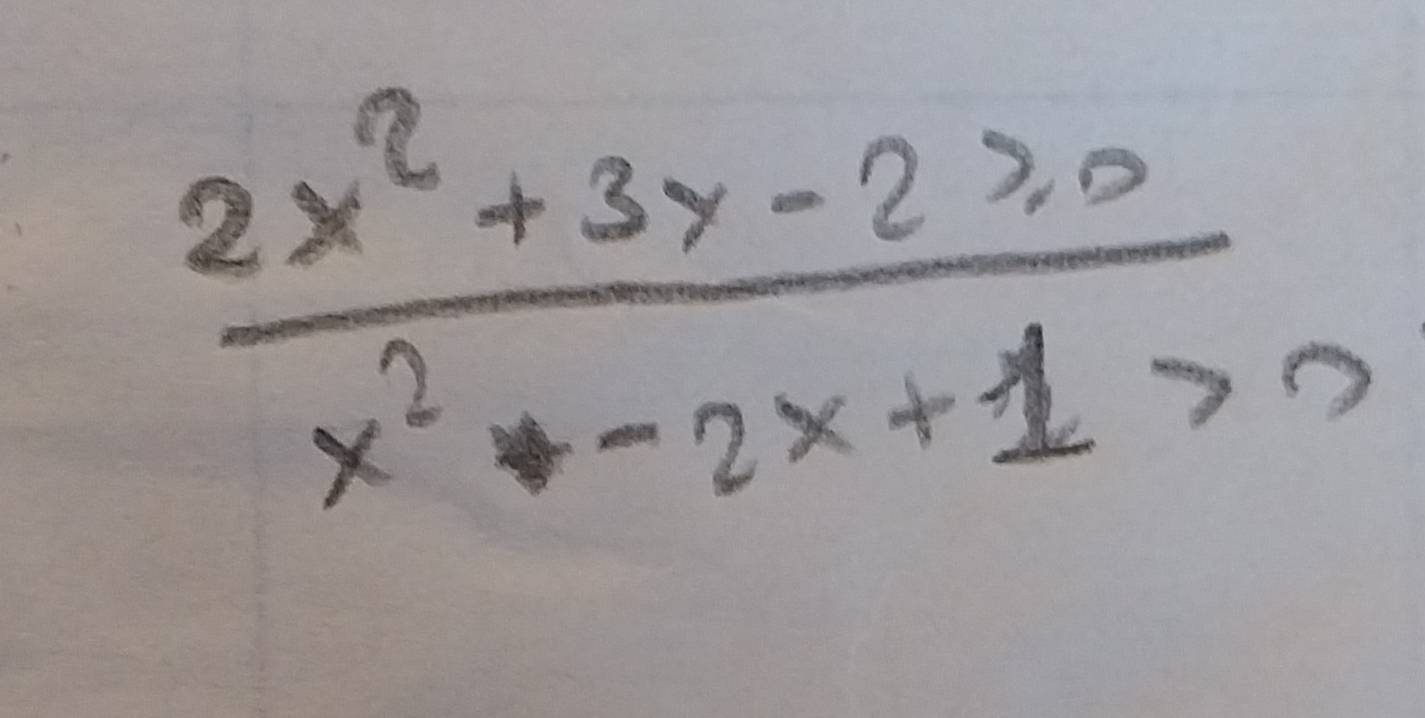 2x² + 3x - 2 ⩾ 0
x² - 2x + 1 > 0